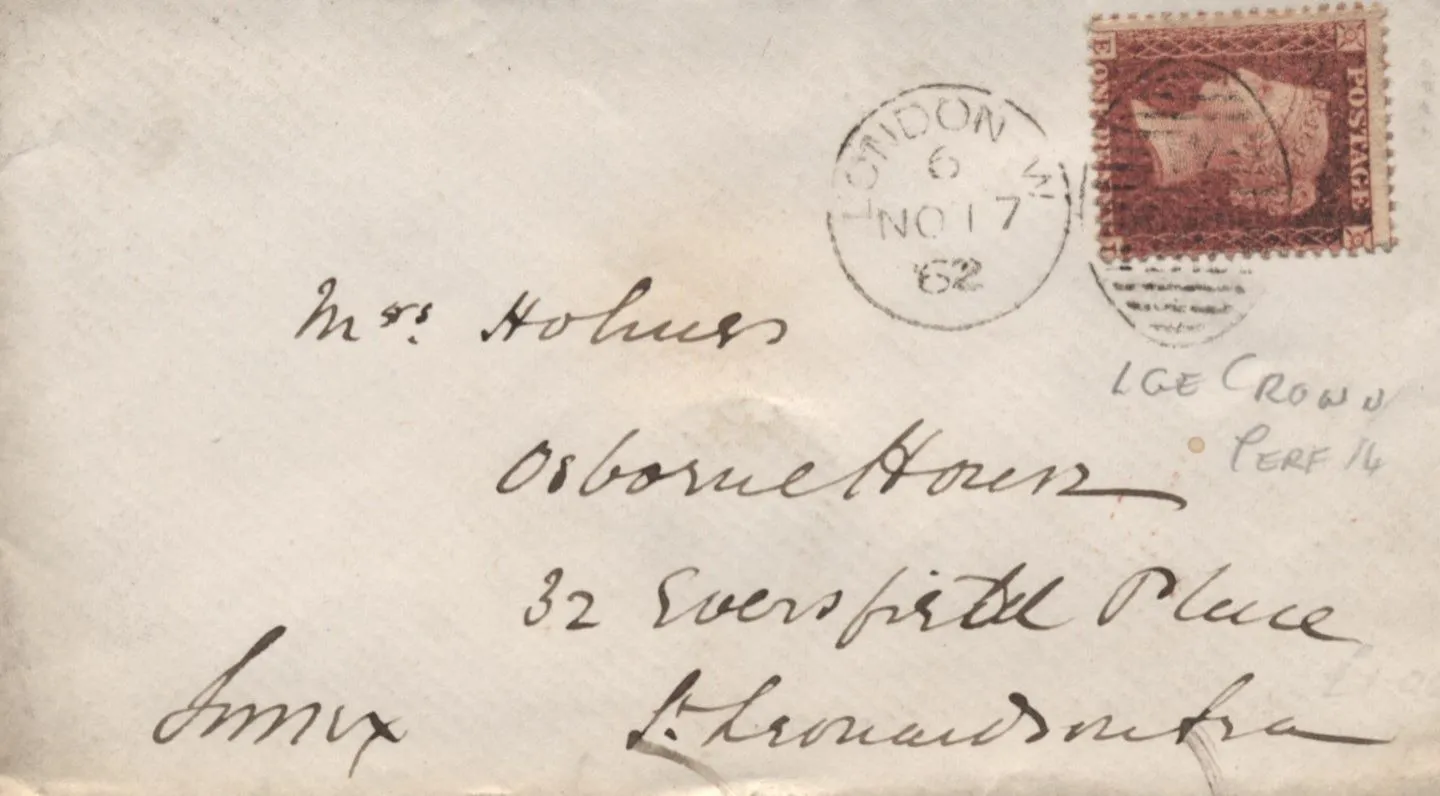 E
POSTAGE
ONE PENNY
LONDON W
6
NO 17
62
LGE CROWN
PERF 14
Mrs. Holmes
Osborne House
32 Eversfield Place
St. Leonards on Sea
Sussex